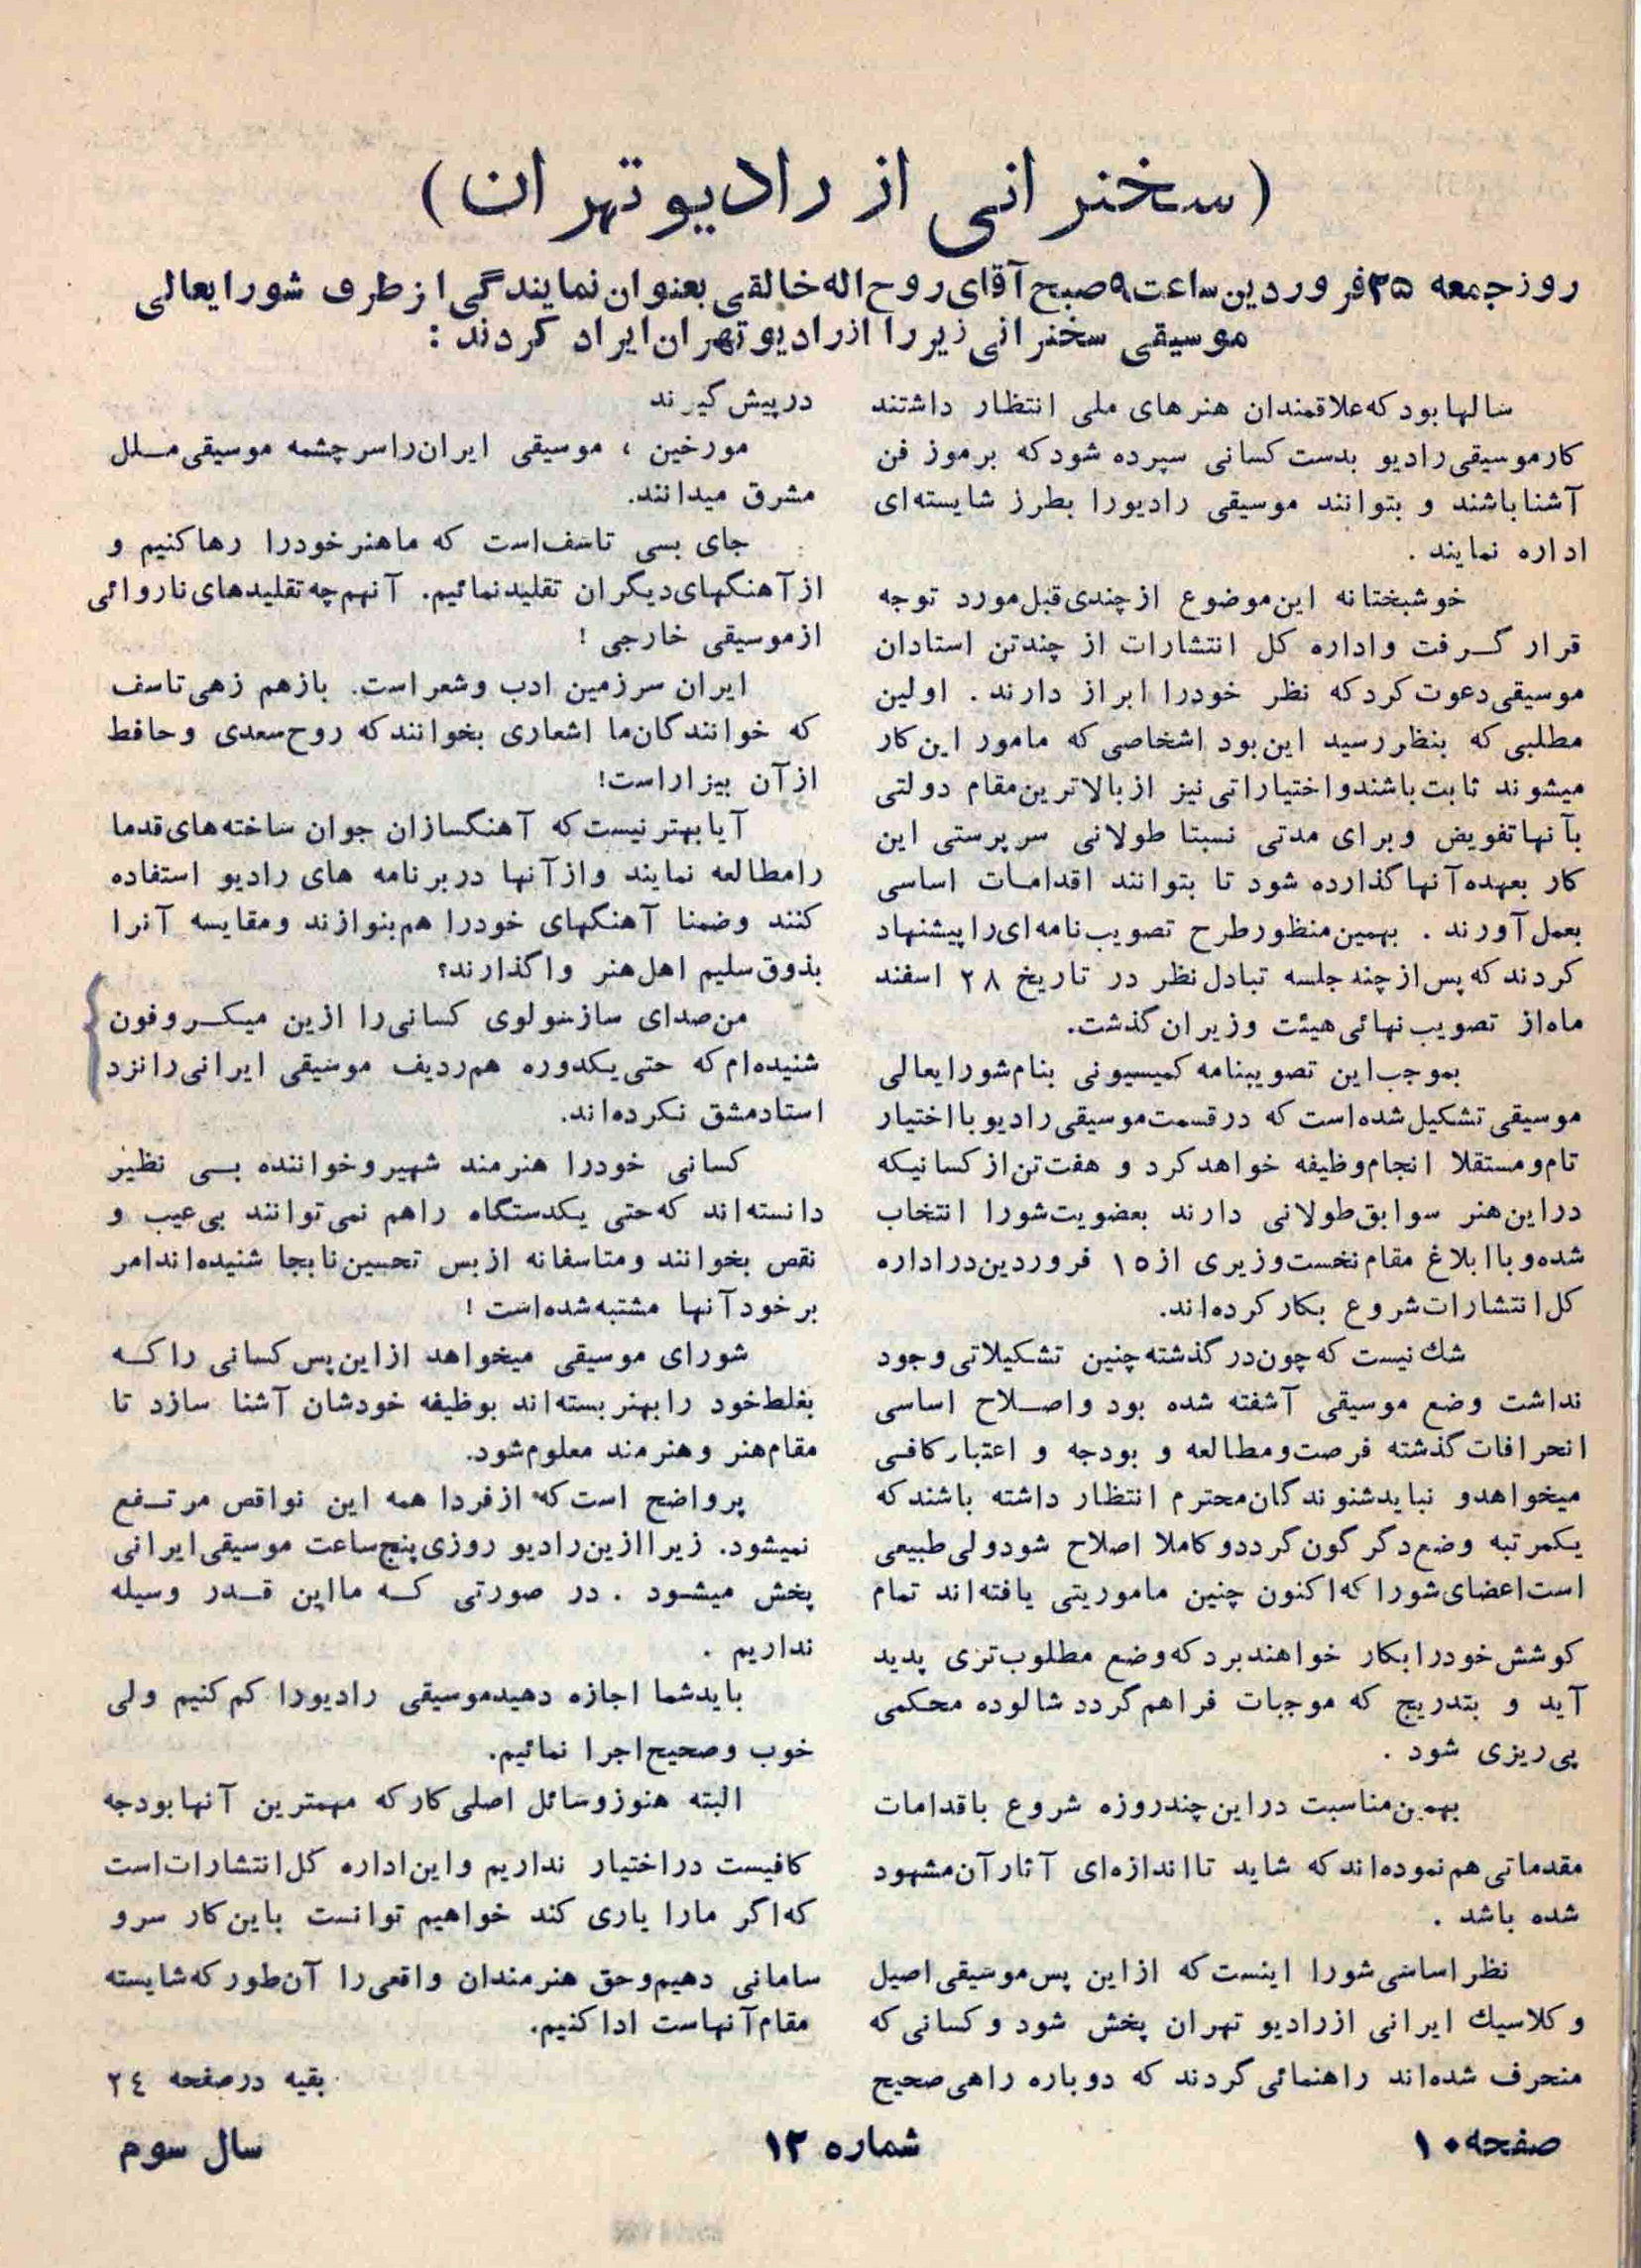 (سخنرانی از رادیو تهران)
روز جمعه ۲۵ فروردین ساعت ۹ صبح آقای روح اله خالقی بعنوان نمایندگی از طرف شورایعالی
موسیقی سخنرانی زیر را از رادیو تهران ایراد کردند :
سالها بود که علاقمندان هنرهای ملی انتظار داشتند
کار موسیقی رادیو بدست کسانی سپرده شود که برموز فن
آشنا باشند و بتوانند موسیقی رادیو را بطرز شایسته‌ای
اداره نمایند .
خوشبختانه این موضوع از چندی قبل مورد توجه
قرار گرفت و اداره کل انتشارات از چند تن استادان
موسیقی دعوت کرد که نظر خود را ابراز دارند . اولین
مطلبی که بنظر رسید این بود اشخاصی که مامور این کار
میشوند ثابت باشند و اختیاراتی نیز از بالاترین مقام دولتی
بآنها تفویض و برای مدتی نسبتا طولانی سرپرستی این
کار بعهده آنها گذارده شود تا بتوانند اقدامات اساسی
بعمل آورند . بهمین منظور طرح تصویب نامه‌ای را پیشنهاد
کردند که پس از چند جلسه تبادل نظر در تاریخ ۲۸ اسفند
ماه از تصویب نهائی هیئت وزیران گذشت.
بموجب این تصویبنامه کمیسیونی بنام شورایعالی
موسیقی تشکیل شده است که در قسمت موسیقی رادیو با اختیار
تام و مستقلا انجام وظیفه خواهد کرد و هفت تن از کسانیکه
در این هنر سوابق طولانی دارند بعضویت شورا انتخاب
شده و با ابلاغ مقام نخست وزیری از ۱۵ فروردین در اداره
کل انتشارات شروع بکار کرده‌اند.
شك نیست که چون در گذشته چنین تشکیلاتی وجود
نداشت وضع موسیقی آشفته شده بود و اصلاح اساسی
انحرافات گذشته فرصت و مطالعه و بودجه و اعتبار کافی
میخواهد و نباید شنوندگان محترم انتظار داشته باشند که
یکمرتبه وضع دگرگون گردد و کاملا اصلاح شود ولی طبیعی
است اعضای شورا که اکنون چنین ماموریتی یافته‌اند تمام
کوشش خود را بکار خواهند برد که وضع مطلوب‌تری پدید
آید و بتدریج که موجبات فراهم گردد شالوده محکمی
پی‌ریزی شود .
بهمین مناسبت در این چند روزه شروع باقدامات
مقدماتی هم نموده‌اند که شاید تا اندازه‌ای آثار آن مشهود
شده باشد .
نظر اساسی شورا اینست که از این پس موسیقی اصیل
و کلاسیك ایرانی از رادیو تهران پخش شود و کسانی که
منحرف شده‌اند راهنمائی گردند که دوباره راهی صحیح
در پیش گیرند
مورخین ، موسیقی ایران را سرچشمه موسیقی ملل
مشرق میدانند.
جای بسی تاسف است که ما هنر خود را رها کنیم و
از آهنگهای دیگران تقلید نمائیم. آنهم چه تقلیدهای ناروائی
از موسیقی خارجی !
ایران سرزمین ادب و شعر است. باز هم زهی تاسف
که خوانندگان ما اشعاری بخوانند که روح سعدی و حافظ
از آن بیزار است!
آیا بهتر نیست که آهنگسازان جوان ساخته‌های قدما
را مطالعه نمایند و از آنها در برنامه های رادیو استفاده
کنند و ضمنا آهنگهای خود را هم بنوازند و مقایسه آنرا
بذوق سلیم اهل هنر واگذارند؟
من صدای ساز سولوی کسانی را ازین میکروفون
شنیده‌ام که حتی یکدوره هم ردیف موسیقی ایرانی را نزد
استاد مشق نکرده‌اند.
کسانی خود را هنرمند شهیر و خواننده بی نظیر
دانسته‌اند که حتی یکدستگاه را هم نمی‌توانند بی‌عیب و
نقص بخوانند و متاسفانه از بس تحسین نابجا شنیده‌اند امر
بر خود آنها مشتبه شده است !
شورای موسیقی میخواهد از این پس کسانی را که
بغلط خود را بهنر بسته‌اند بوظیفه خودشان آشنا سازد تا
مقام هنر و هنرمند معلوم شود.
پر واضح است که از فردا همه این نواقص مرتفع
نمیشود. زیرا ازین رادیو روزی پنج ساعت موسیقی ایرانی
پخش میشود . در صورتی که ما این قدر وسیله
نداریم .
باید شما اجازه دهید موسیقی رادیو را کم کنیم ولی
خوب و صحیح اجرا نمائیم.
البته هنوز وسائل اصلی کار که مهمترین آنها بودجه
کافیست در اختیار نداریم و این اداره کل انتشارات است
که اگر ما را یاری کند خواهیم توانست باین کار سر و
سامانی دهیم و حق هنرمندان واقعی را آن طور که شایسته
مقام آنهاست ادا کنیم.
بقیه در صفحه ۲٤
صفحه ۱۰
شماره ۱۲
سال سوم